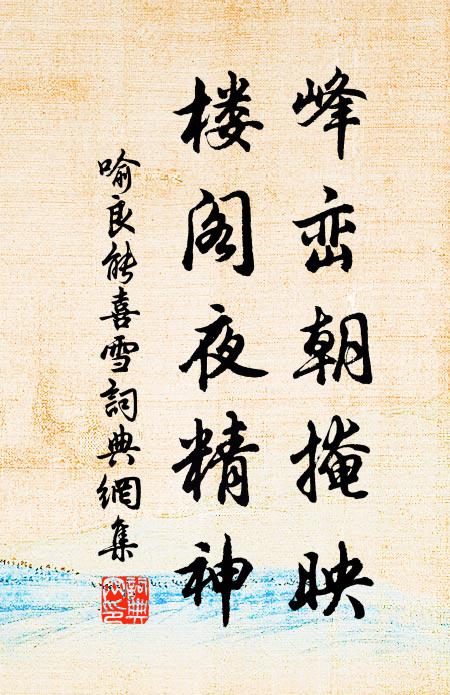 峰峦朝掩映
楼阁夜精神
喻良能喜雪詞典網集